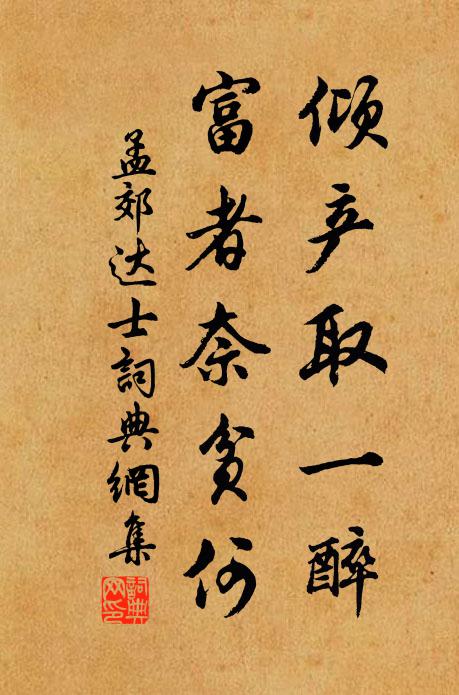 倾产取一醉
富者奈贫何
孟郊达士詞典網集
詞典网印